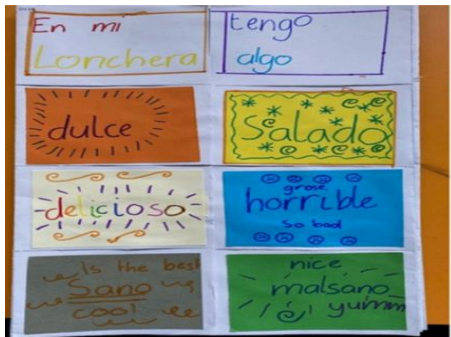 En mi
Lonchera
tengo
algo
dulce
Salado
delicioso
grose
horrible
so bad
Is the best
Sano
cool
nice
malsano
yumm